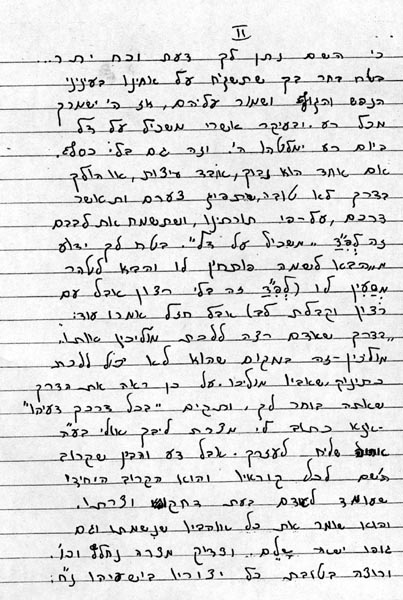 II
כי השם נתן לך דעת וכח יתר...
בטח בחר בך שתשגיח על אחינו בעניני
הנפש והגוף ושמור עליהם, אז ה' ישמרך
מכל רע. ובעיקר אשרי משכיל על דל
ביום רע ימלטהו ה' וזה גם בלי כסף.
אם אחד הוא נבוך, אובד עיצות, או הולך
בדרך לא טובה, שתביע צערם ותאשר
דרכם, על-פי תורתינו, ושתשמח את לבבם
זה לבד "משכיל על דל". בטח לך ידוע
מ"הבא לטמא פותחין לו והבא לטהר
מסעין לו (לבד זה בלי רצון אבל עם
רצון וקבלת לב) אבל חזל אמרו עוד:
"בדרך שאדם רצה ללכת מוליכין אותו.
מוליכין-זה במקום שהוא לא יכול ללכת
כתינוק, שאביו מוליכו. על כן ראה את הדרך
שאתה בוחר לך, ותקים "בכל דרכך דעיהו"
-אנא כתוב לי מצרת ליבך אולי בע"ה
שליח לעזרך. אבל דע והבין שקרוב
השם לכל קוראיו והוא הקרוב היחידי
שעומד לאדם בעת דחקו וצרתו.
והוא שומר את כל אוהביו שנשמתו וגם
גופו ישאר שלם. וצדיק מצרה נחלץ וכו'.
ורוצה בטובת כל יצוריו בישעיהו נ"ח: